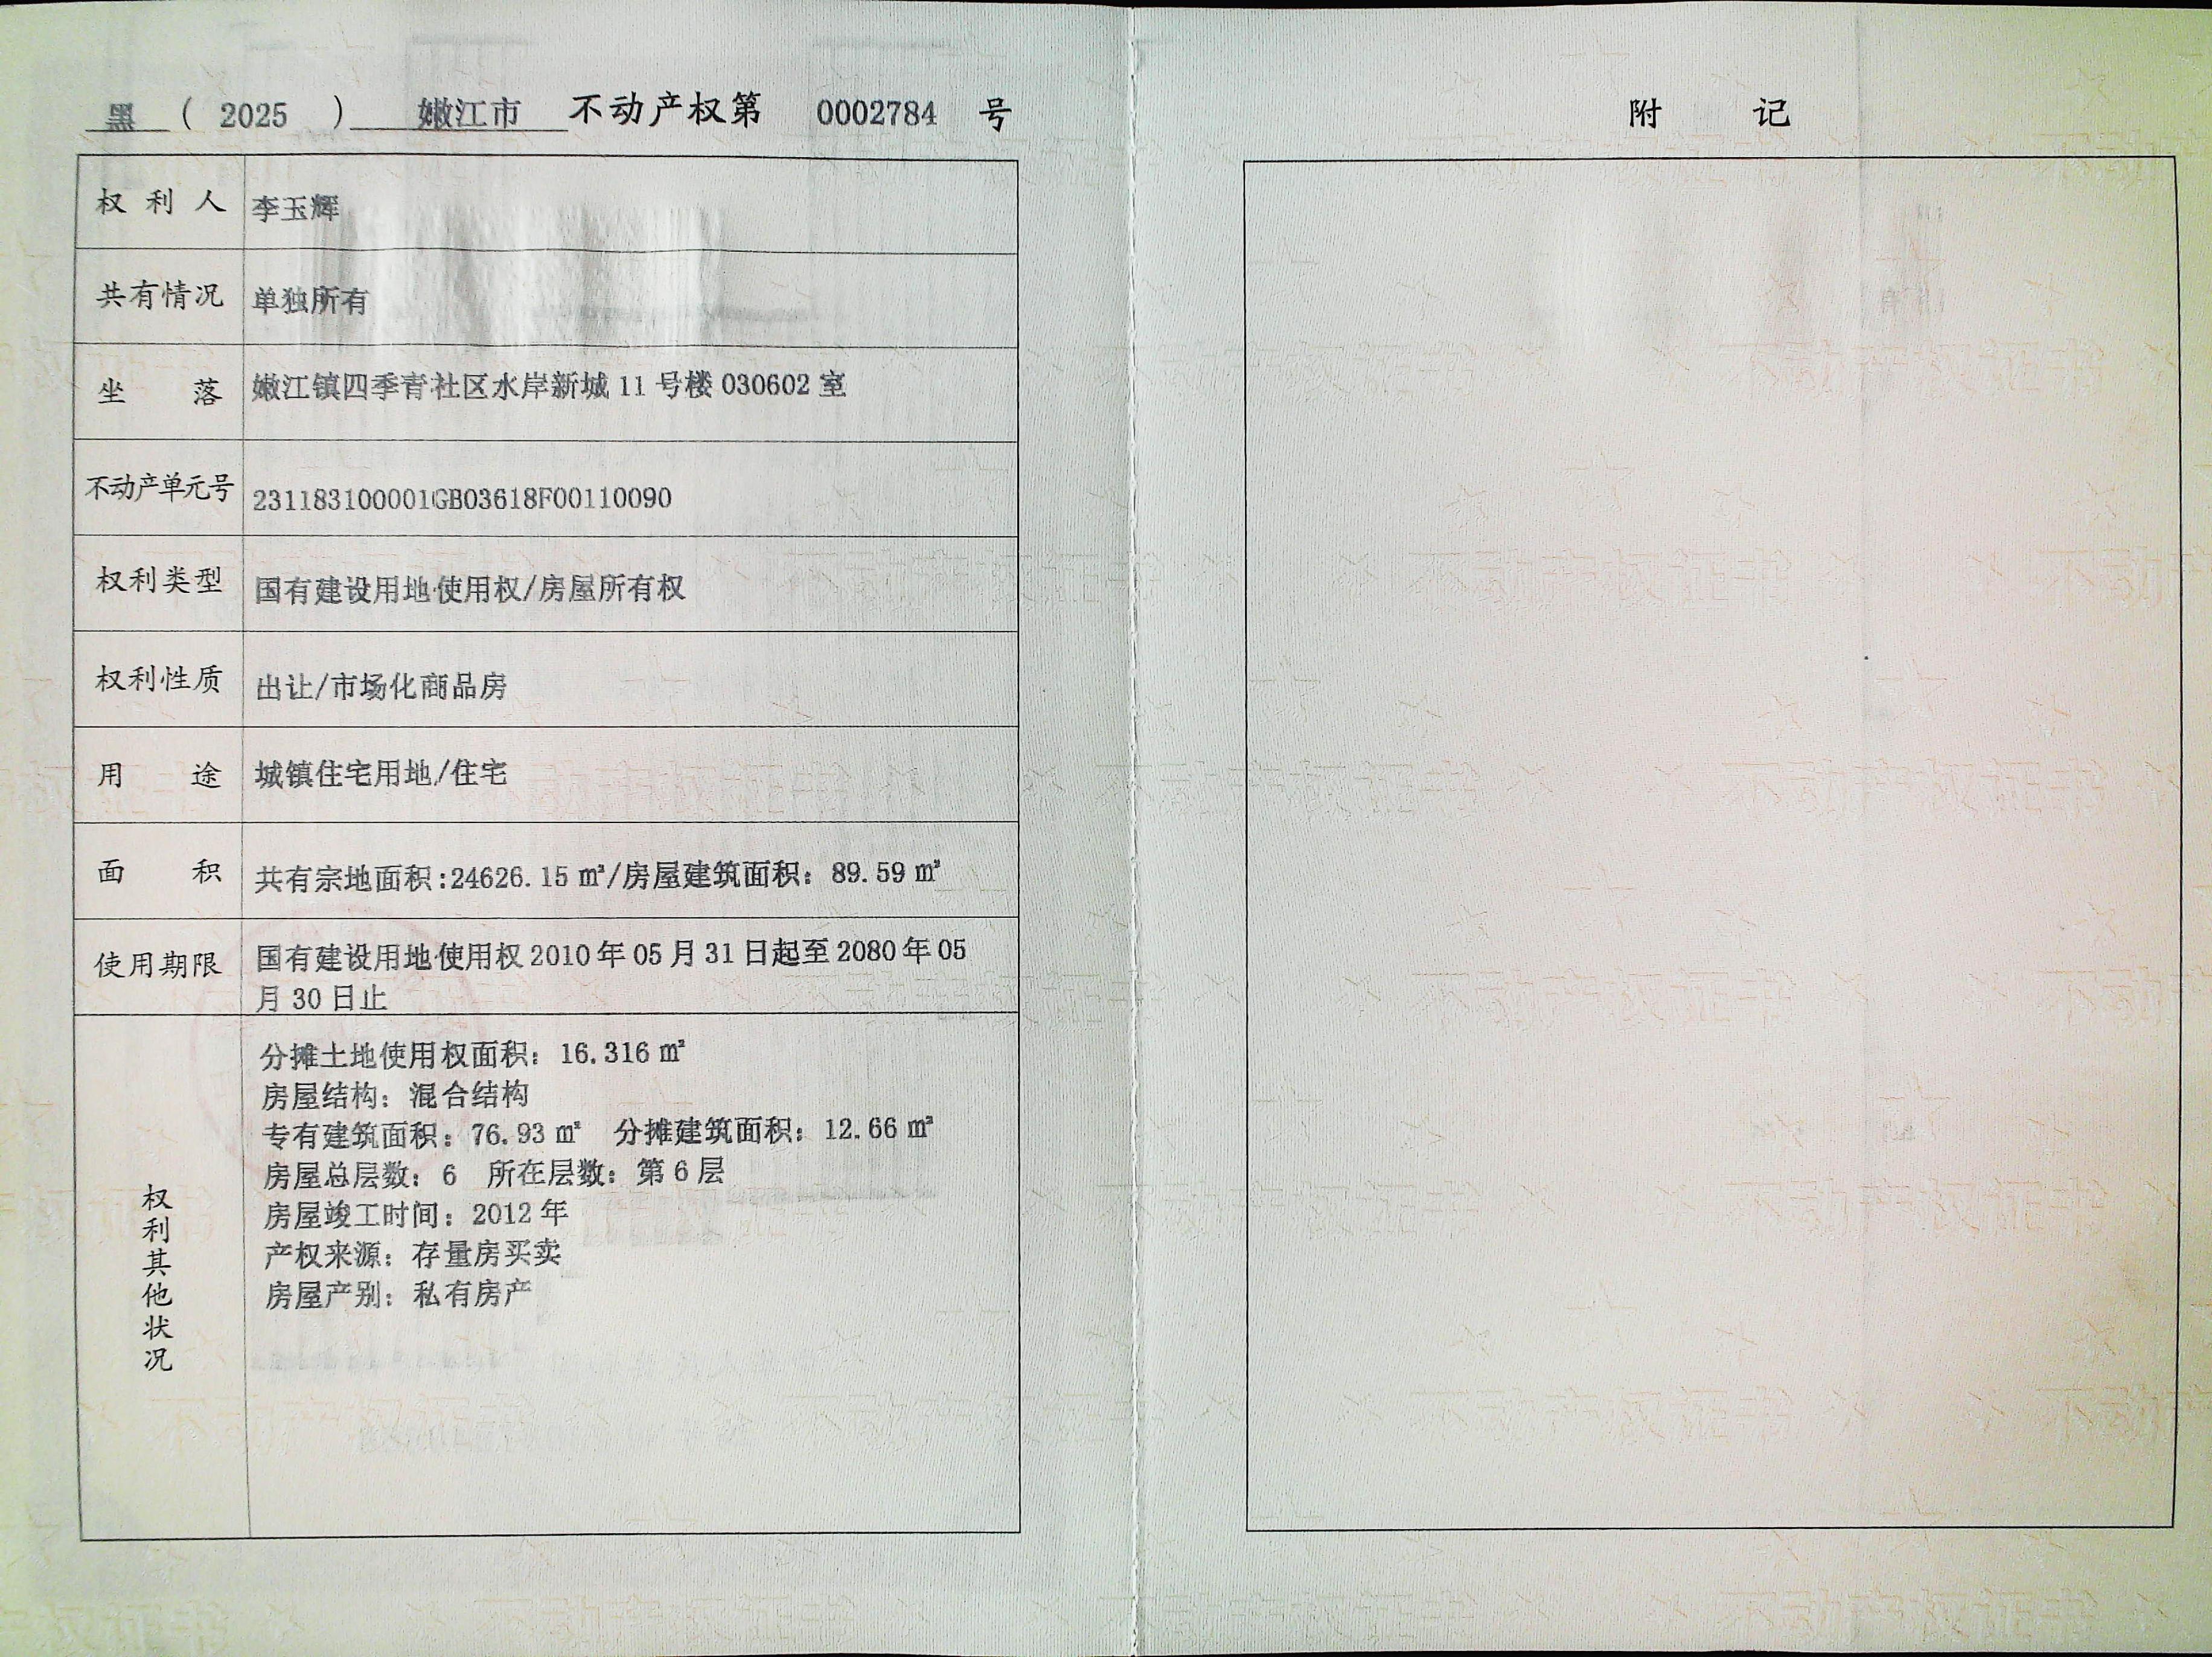 黑 ( 2025 ) 嫩江市 不动产权第 0002784 号
权利人 李玉辉
共有情况 单独所有
坐落 嫩江镇四季青社区水岸新城 11 号楼 030602 室
不动产单元号 231183100001GB03618F00110090
权利类型 国有建设用地使用权/房屋所有权
权利性质 出让/市场化商品房
用途 城镇住宅用地/住宅
面积 共有宗地面积:24626.15 ㎡/房屋建筑面积：89.59 ㎡
使用期限 国有建设用地使用权 2010 年 05 月 31 日起至 2080 年 05
月 30 日止
权利其他状况
分摊土地使用权面积：16.316 ㎡
房屋结构：混合结构
专有建筑面积：76.93 ㎡ 分摊建筑面积：12.66 ㎡
房屋总层数：6 所在层数：第 6 层
房屋竣工时间：2012 年
产权来源：存量房买卖
房屋产别：私有房产
附记